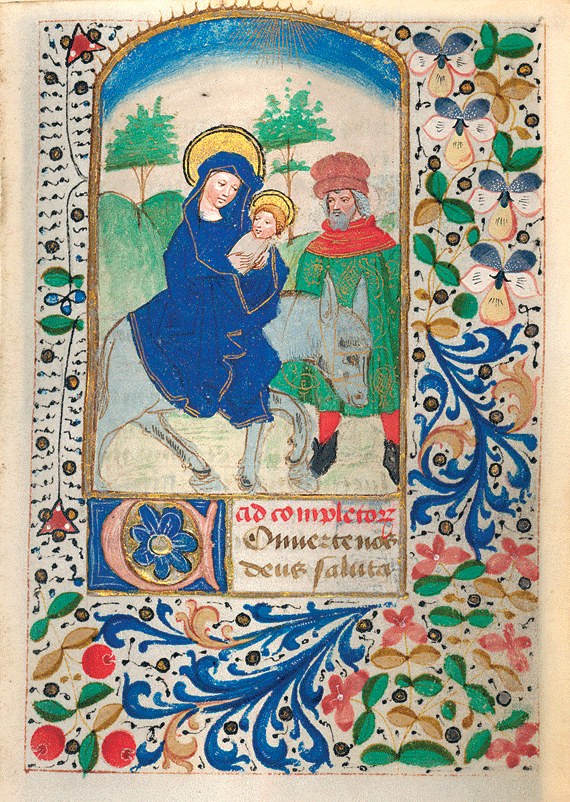 ad completorꝫ
COnuerte nos
deus saluta